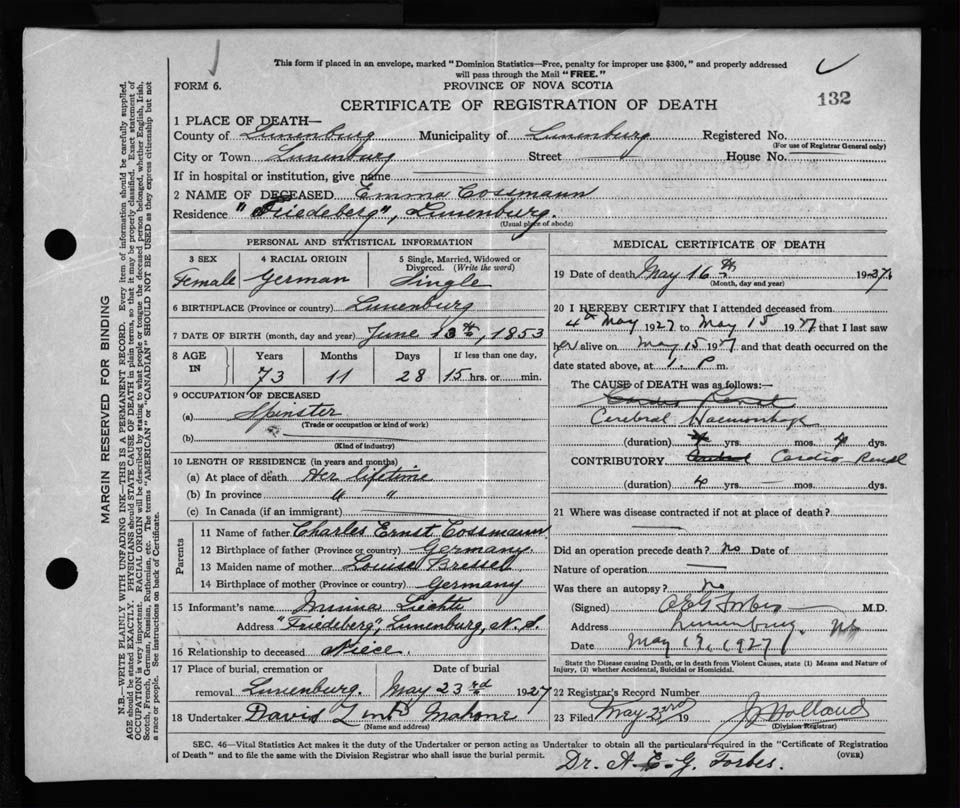 This form if placed in an envelope, marked "Dominion Statistics—Free, penalty for improper use $300," and properly addressed
will pass through the Mail "FREE."
FORM 6.
PROVINCE OF NOVA SCOTIA
CERTIFICATE OF REGISTRATION OF DEATH
132
1 PLACE OF DEATH—
County of Lunenburg Municipality of Lunenburg Registered No.
(For use of Registrar General only)
City or Town Lunenburg Street — House No.
If in hospital or institution, give name
2 NAME OF DECEASED Emma Cossmann
Residence "Friedeberg", Lunenburg.
(Usual place of abode)
PERSONAL AND STATISTICAL INFORMATION
3 SEX 4 RACIAL ORIGIN 5 Single, Married, Widowed or Divorced. (Write the word)
Female German Single
6 BIRTHPLACE (Province or country) Lunenburg
7 DATE OF BIRTH (month, day and year) June 13th, 1853
8 AGE IN Years Months Days If less than one day,
73 11 28 15 hrs. or min.
9 OCCUPATION OF DECEASED
(a) Spinster
(Trade or occupation or kind of work)
(b)
(Kind of industry)
10 LENGTH OF RESIDENCE (in years and months)
(a) At place of death Her lifetime
(b) In province " "
(c) In Canada (if an immigrant)
Parents
11 Name of father Charles Ernst Cossmann
12 Birthplace of father (Province or country) Germany
13 Maiden name of mother Louise Bressel
14 Birthplace of mother (Province or country) Germany
15 Informant's name Minna Liechti
Address "Friedeberg", Lunenburg, N. S.
16 Relationship to deceased Niece.
17 Place of burial, cremation or Date of burial
removal Lunenburg. May 23rd 1927
18 Undertaker David Mahone
(Name and address)
MEDICAL CERTIFICATE OF DEATH
19 Date of death May 16th 1927
(Month, day and year)
20 I HEREBY CERTIFY that I attended deceased from
4th May 1927 to May 15 1927 that I last saw
her alive on May 15 1927 and that death occurred on the
date stated above, at 1. P m.
The CAUSE of DEATH was as follows:—
Cardio Renal
Cerebral Haemorrhage
(duration) yrs. mos. 4 dys.
CONTRIBUTORY Cardio Renal
(duration) 4 yrs. — mos. dys.
21 Where was disease contracted if not at place of death?
Did an operation precede death? no Date of
Nature of operation
Was there an autopsy? No
(Signed) AEG Forbes M.D.
Address Lunenburg NS
Date May 1927
State the Disease causing Death, or in death from Violent Causes, state (1) Means and Nature of
Injury, (2) whether Accidental, Suicidal or Homicidal.
22 Registrar's Record Number
23 Filed May 23rd 19 J Holland
(Division Registrar)
SEC. 46—Vital Statistics Act makes it the duty of the Undertaker or person acting as Undertaker to obtain all the particulars required in the "Certificate of Registration
of Death" and to file the same with the Division Registrar who shall issue the burial permit.
(OVER)
Dr. A. E. G. Forbes.
MARGIN RESERVED FOR BINDING
N.B.—WRITE PLAINLY WITH UNFADING INK—THIS IS A PERMANENT RECORD. Every item of information should be carefully supplied.
AGE should be stated EXACTLY. PHYSICIANS should STATE CAUSE OF DEATH in plain terms, so that it may be properly classified. Exact statement of
OCCUPATION is very important. RACIAL ORIGIN will be described by stating to what people or tongue the deceased person belonged, whether English, Irish,
Scotch, French, German, Russian, Ruthenian, etc. The terms "AMERICAN" or "CANADIAN" SHOULD NOT BE USED as they express citizenship but not
a race or people. See instructions on back of Certificate.